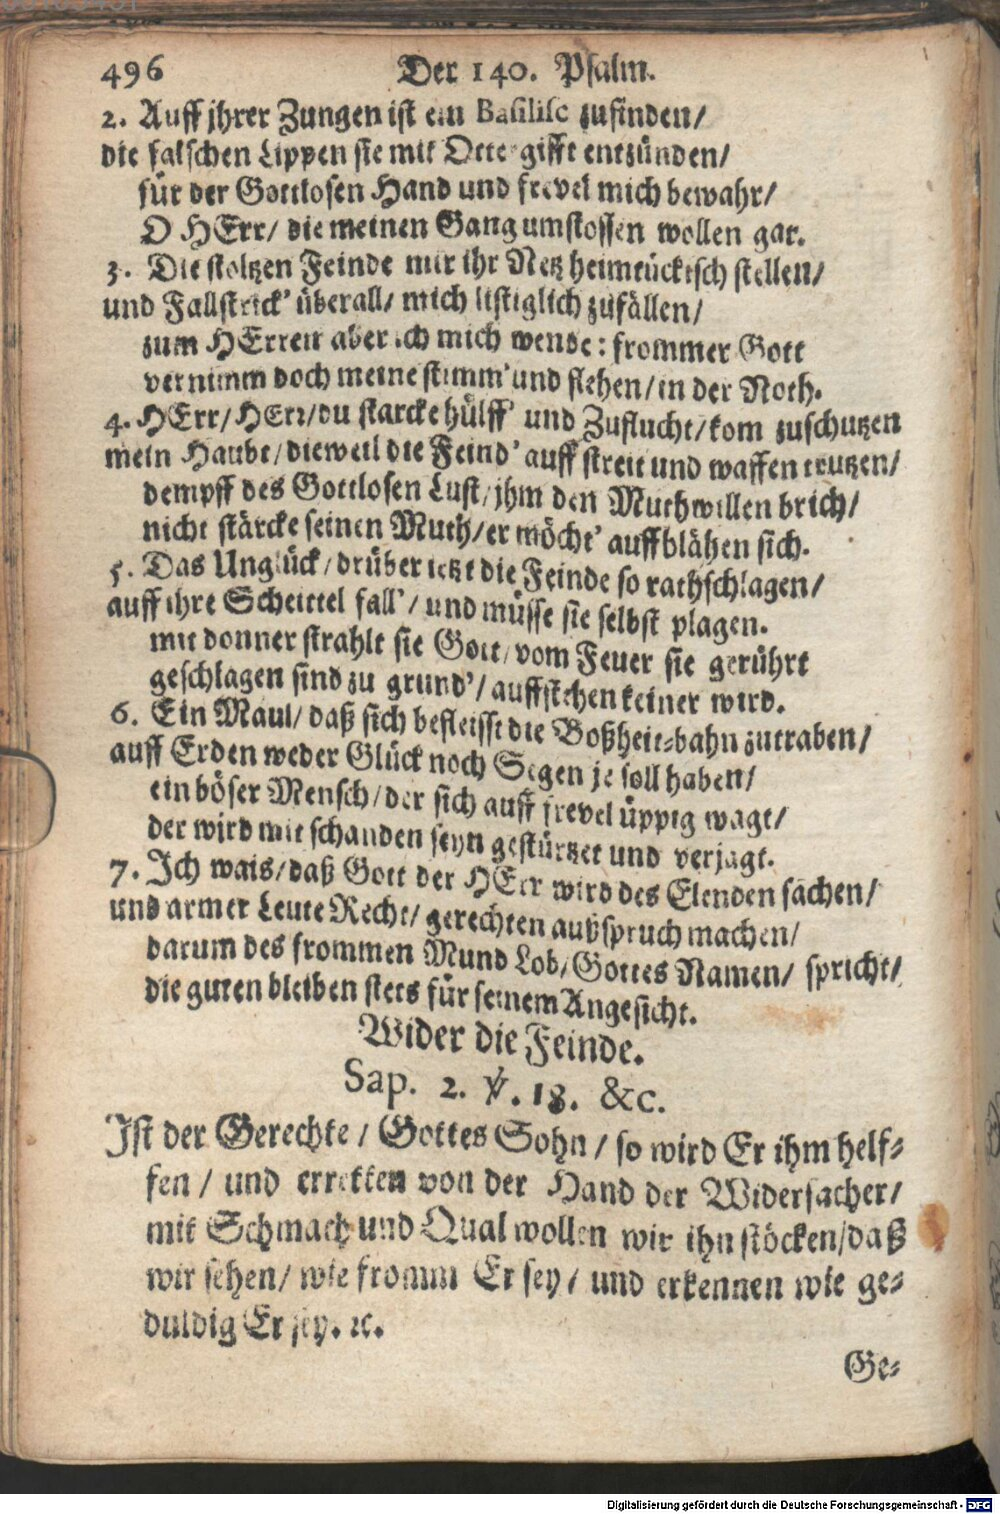 496 Der 140. Psalm.
2. Auff jhrer Zungen ist ein Basilisc zufinden/
die falschen Lippen sie mit Ottergifft entzünden/
für der Gottlosen Hand und frevel mich bewahr/
O HErr/ die meinen Gang umstossen wollen gar.
3. Die stoltzen Feinde mir ihr Netz heimtückisch stellen/
und Fallstrick' überall/ mich listiglich zufällen/
zum HErren aber ich mich wende: frommer Gott
vernimm doch meine stimm' und flehen/ in der Noth.
4. HErr/ HErr/ du starcke hülff' und Zuflucht/ kom zuschutzen
mein Haubt/ dieweil die Feind' auff streit und waffen trutzen/
dempff des Gottlosen Lust/ jhm den Muthwillen brich/
nicht stärcke seinen Muth/ er möcht' auffblähen sich.
5. Das Unglück/ drüber jetzt die Feinde so rathschlagen/
auff ihre Scheittel fall'/ und müsse sie selbst plagen.
mit donner strahlt sie Gott/ vom Feuer sie gerührt
geschlagen sind zu grund'/ auffstehen keiner wird.
6. Ein Maul/ daß sich befleisst die Boßheit-bahn zutraben/
auff Erden weder Glück noch Segen je soll haben/
ein böser Mensch/ der sich auff frevel üppig wagt/
der wird mit schanden seyn gestürtzet und verjagt.
7. Ich wais/ daß Gott der HErr wird des Elenden sachen/
und armer Leute Recht/ gerechten außspruch machen/
darum des frommen Mund Lob/ Gottes Namen/ spricht/
die guten bleiben stets für seinem Angesicht.
Wider die Feinde.
Sap. 2. ℣. 18. &c.
Ist der Gerechte / Gottes Sohn / so wird Er ihm helf-
fen / und erretten von der Hand der Widersacher/
mit Schmach und Qual wollen wir ihn stöcken/ daß
wir sehen/ wie fromm Er sey / und erkennen wie ge-
duldig Er sey. ꝛc.
Ge-
Digitalisierung gefördert durch die Deutsche Forschungsgemeinschaft - DFG